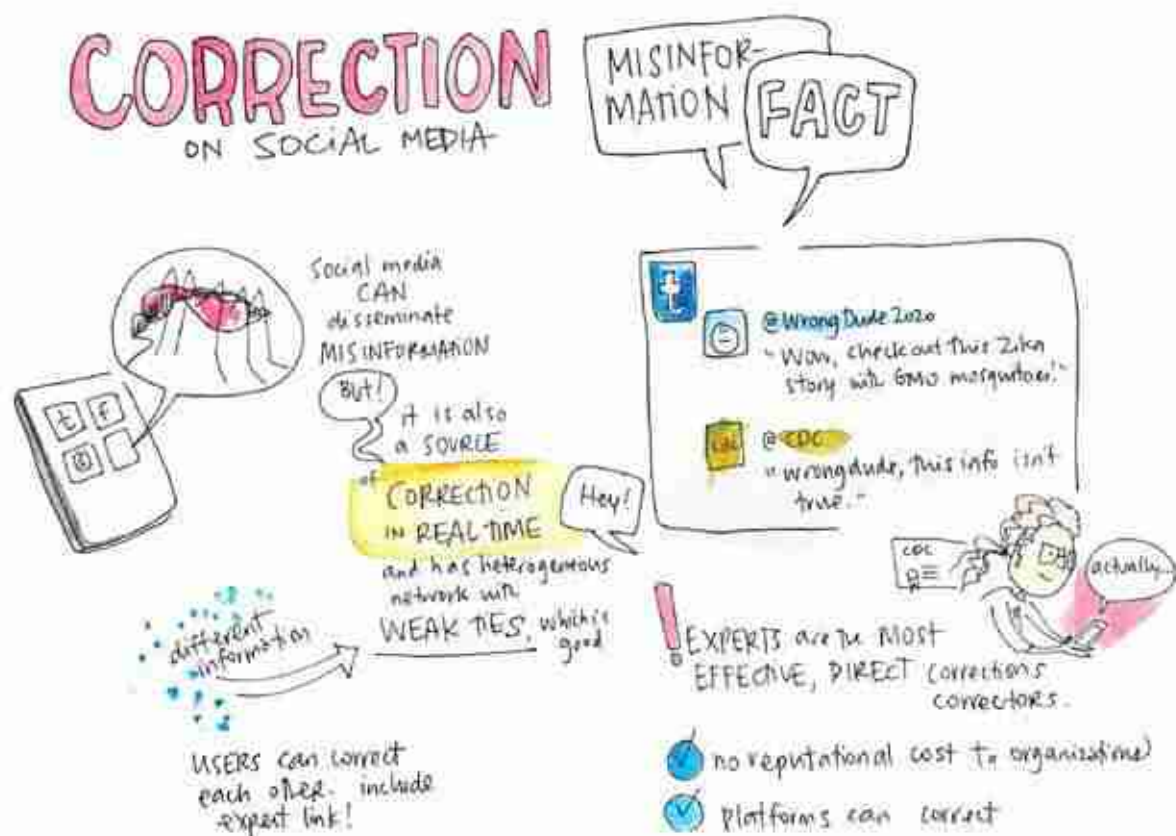 CORRECTION
ON SOCIAL MEDIA
MISINFOR-
MATION
FACT
Social media
CAN
disseminate
MISINFORMATION
But!
it is also
a SOURCE
of
CORRECTION
IN REAL TIME
and has heterogeneous
network with
WEAK TIES, which is
good
Hey!
t f
different
information
USERS can correct
each other. include
expert link!
t
@WrongDude2020
"Wow, check out this Zika
story with GMO mosquitoes!"
CDC
@CDC
"wrongdude, this info isn't
true."
CDC
actually...
! EXPERTS are the MOST
EFFECTIVE, DIRECT corrections
correctors.
no reputational cost to organizations)
platforms can correct